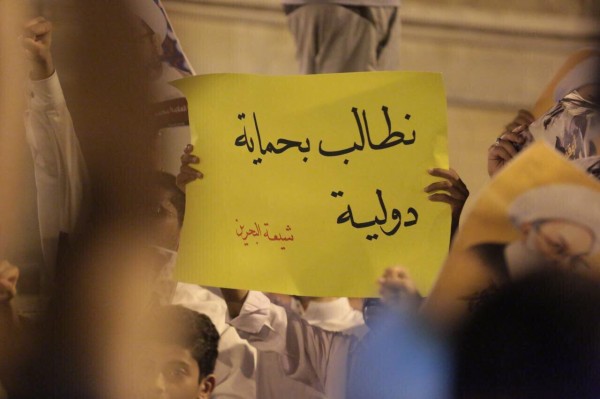 نطالب بحماية
دولية
شيعة البحرين